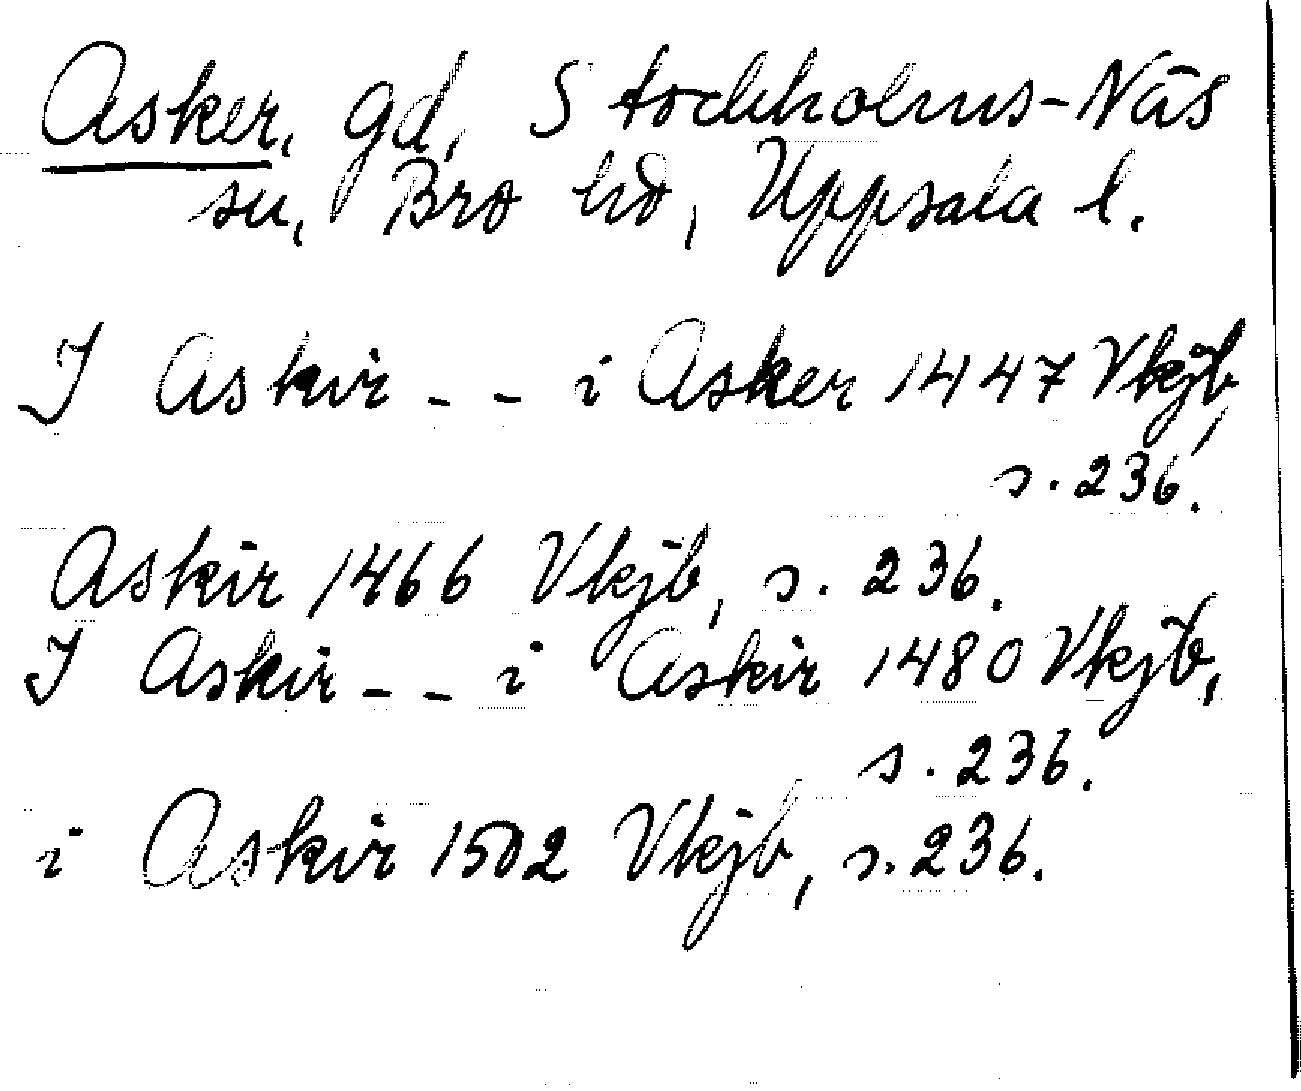 Asker, gd, Stockholms-Näs
sn, Bro hd, Uppsala l.
I Askir - - i Asker 1447 Vkjb,
s. 236.
Askir 1466 Vkjb, s. 236.
I Askir - - i Askir 1480 Vkjb,
s. 236.
i Askir 1502 Vkjb, s. 236.